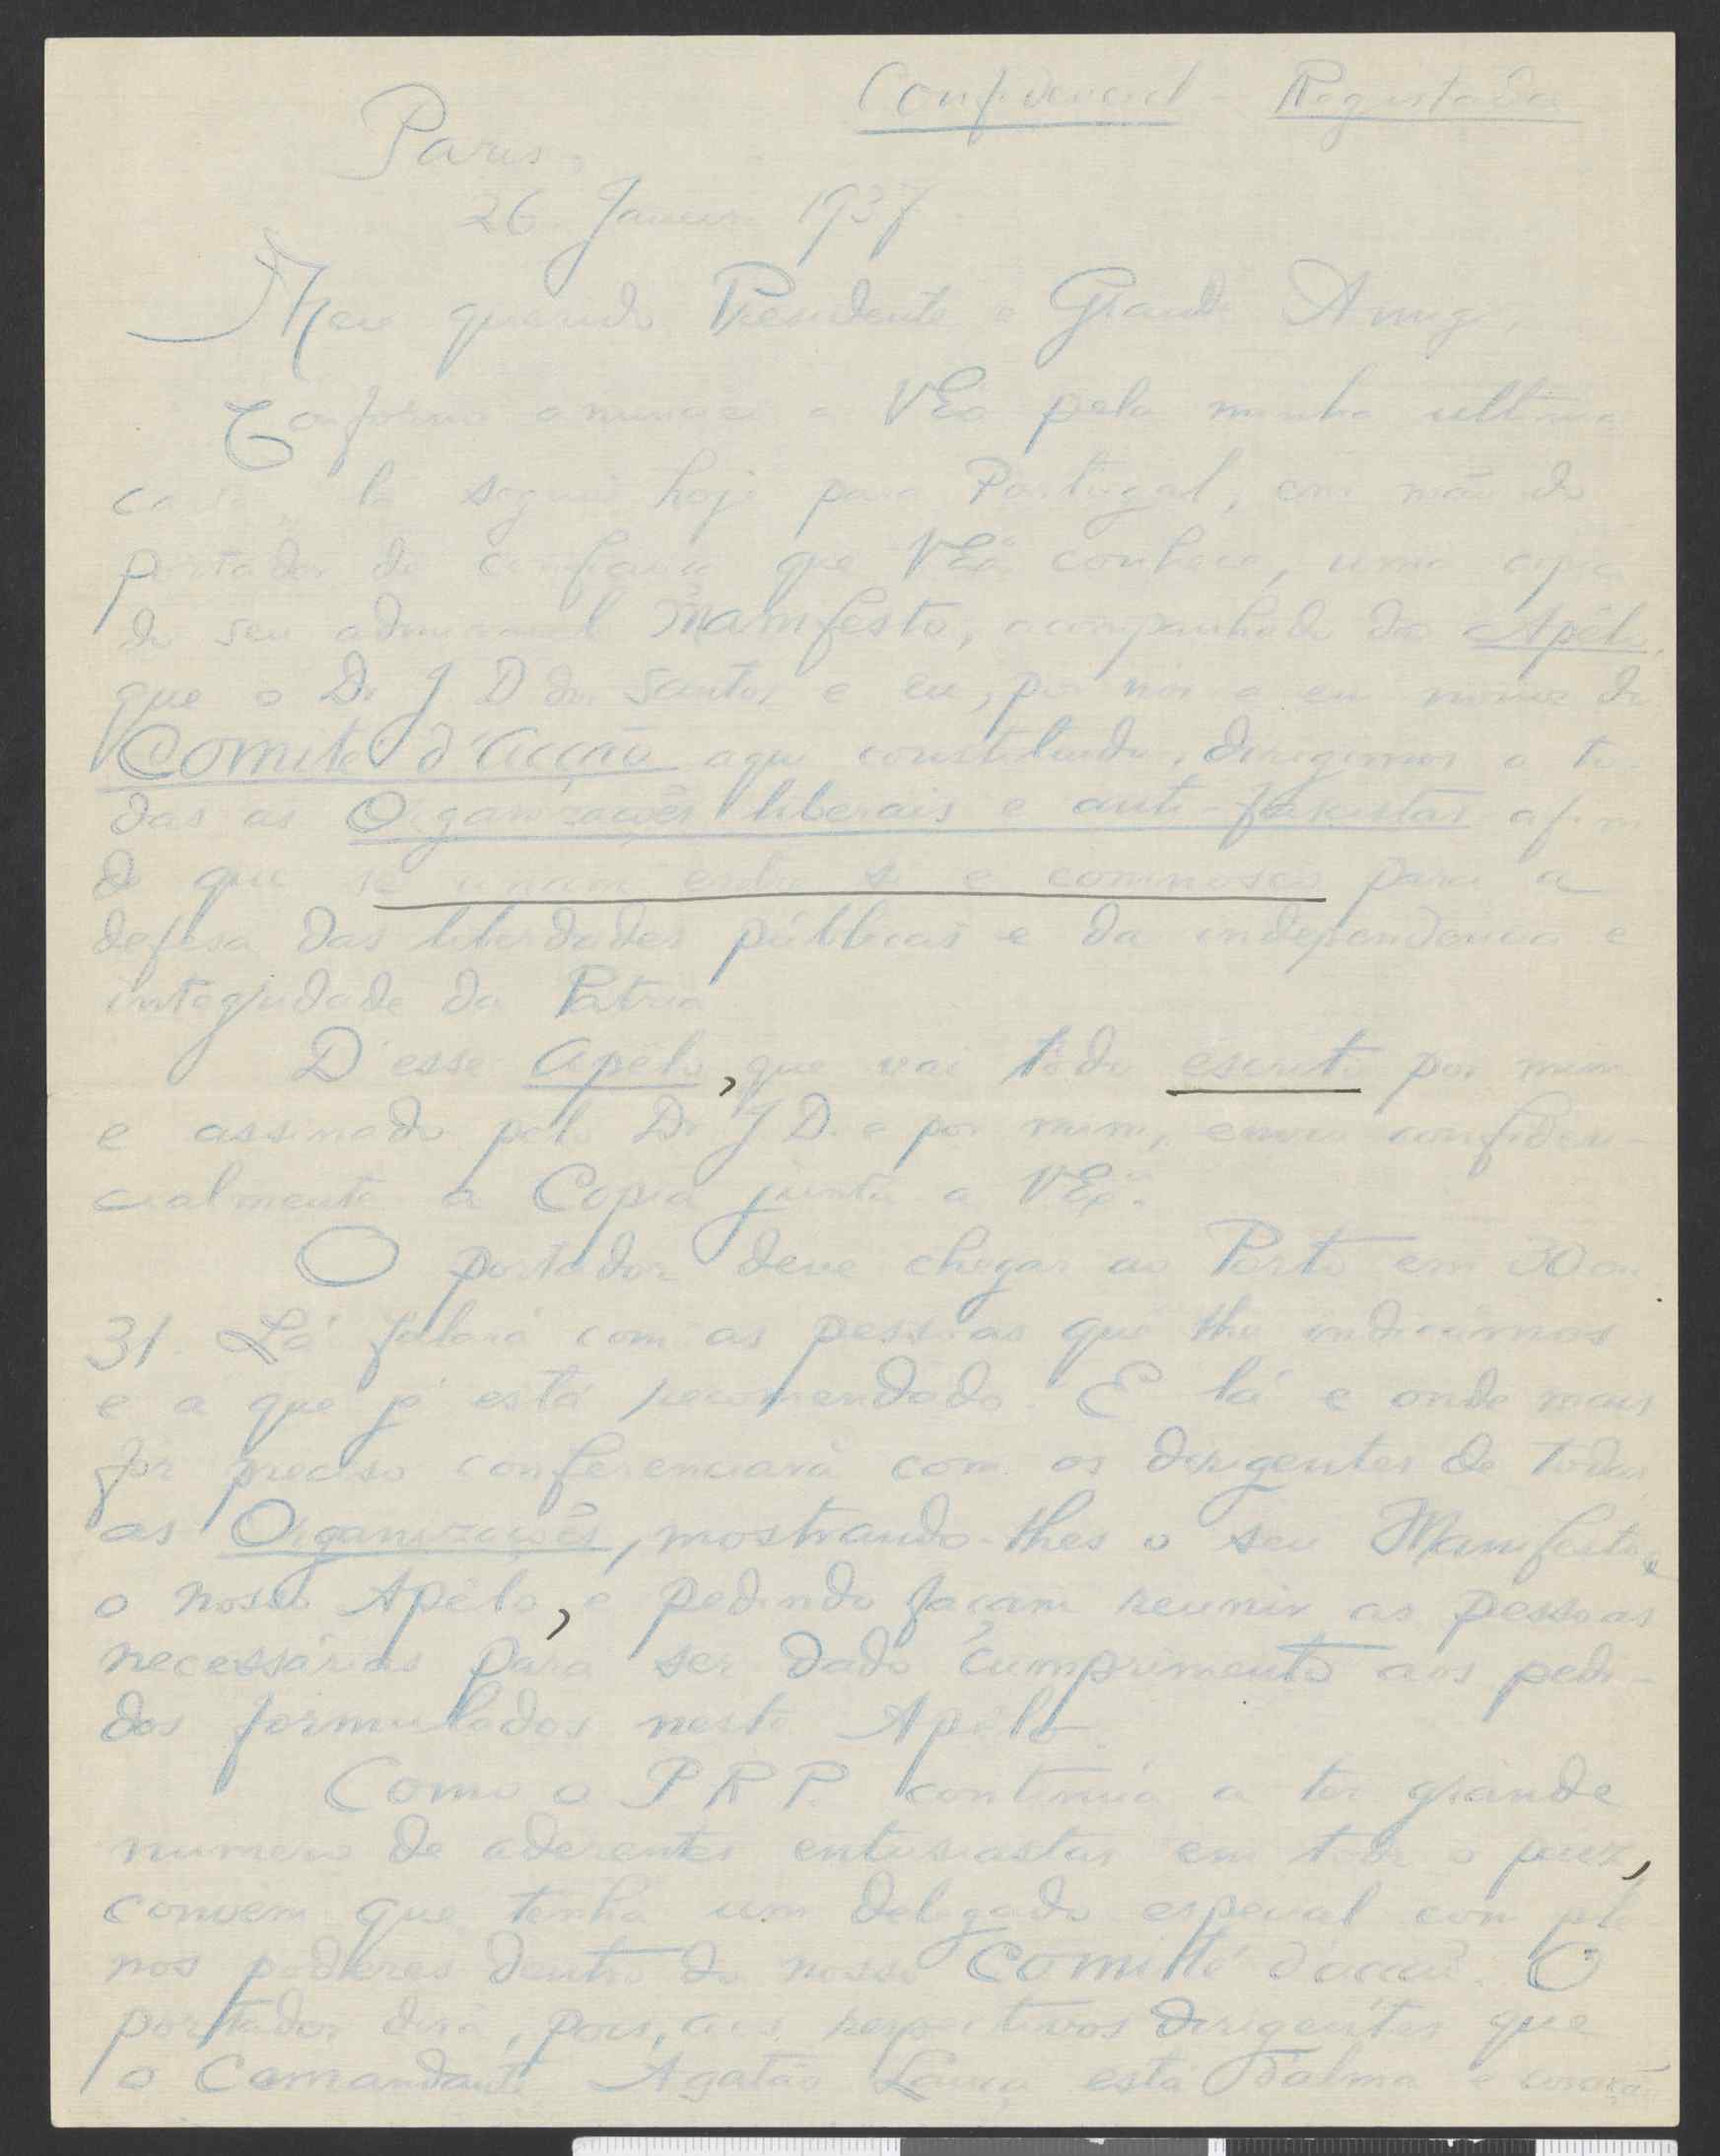 Confidencial - Registada
Paris,
26 Janeiro 1937
Meu querido Presidente e Grande Amigo,
Conforme anunciei a VExª pela minha ultima
carta, lá seguiu hoje para Portugal, em mão de
portador de confiança que VExª conhece, uma copia
do seu admiravel Manifesto, acompanhado do Apêlo,
que o Dr J D dos Santos e eu, por nós e em nome do
Comité d'acção aqui constituido, dirigimos a to-
das as Organizações liberais e anti-fascistas afim
de que se unam entre si e comnosco para a
defesa das liberdades públicas e da independencia e
integridade da Patria.
D'esse apêlo, que vai todo escrito por mim
e assinado pelo Dr J D. e por mim, envio confiden-
cialmente a Copia junta a VExª.
O portador deve chegar ao Porto em 30 ou
31. Lá falará com as pessoas que lhe indicámos
e a que já está recomendado. E lá e onde mais
fôr preciso conferenciará com os dirigentes de todas
as Organizações, mostrando-lhes o seu Manifesto e
o nosso Apêlo, e pedindo façam reunir as pessoas
necessárias para ser dado cumprimento aos pedi-
dos formulados neste Apêlo.
Como o P R P. continúa a ter grande
numero de aderentes entusiastas em todo o paiz,
convem que tenha um delegado especial com ple-
nos poderes dentro do nosso Comité d'acção. O
portador dirá, pois, aos respectivos dirigentes que
o Comandante Agatão Lança está d'alma e coração